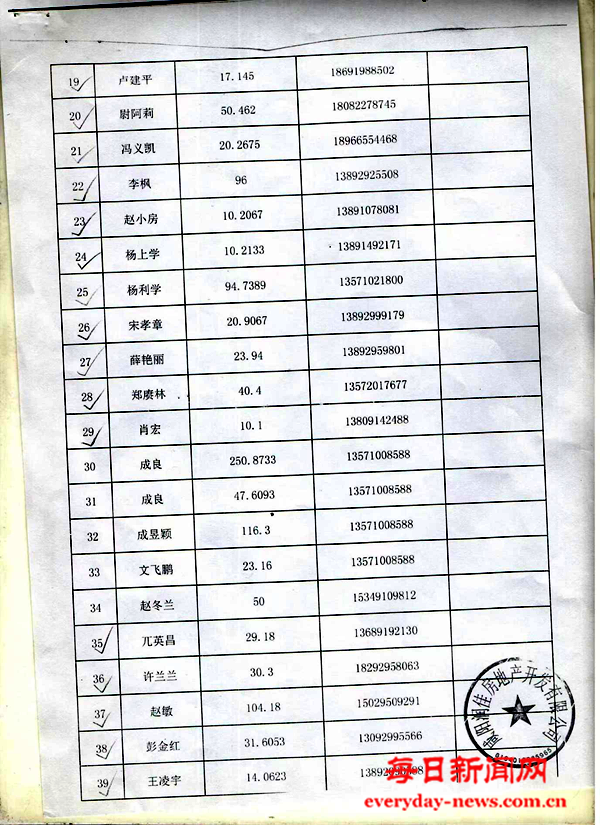 19 卢建平 17.145 18691988502
20 尉阿莉 50.462 18082278745
21 冯义凯 20.2675 18966554468
22 李枫 96 13892925508
23 赵小房 10.2067 13891078081
24 杨上学 10.2133 13891492171
25 杨利学 94.7389 13571021800
26 宋孝章 20.9067 13892999179
27 薛艳丽 23.94 13892959801
28 郑赓林 40.4 13572017677
29 肖宏 10.1 13809142488
30 成良 250.8733 13571008588
31 成良 47.6093 13571008588
32 成昱颖 116.3 13571008588
33 文飞鹏 23.16 13571008588
34 赵冬兰 50 15349109812
35 兀英昌 29.18 13689192130
36 许兰兰 30.3 18292958063
37 赵敏 104.18 15029509291
38 彭金红 31.6053 13092995566
39 王凌宇 14.0623
咸阳润佳房地产开发有限公司
每日新闻网
everyday-news.com.cn